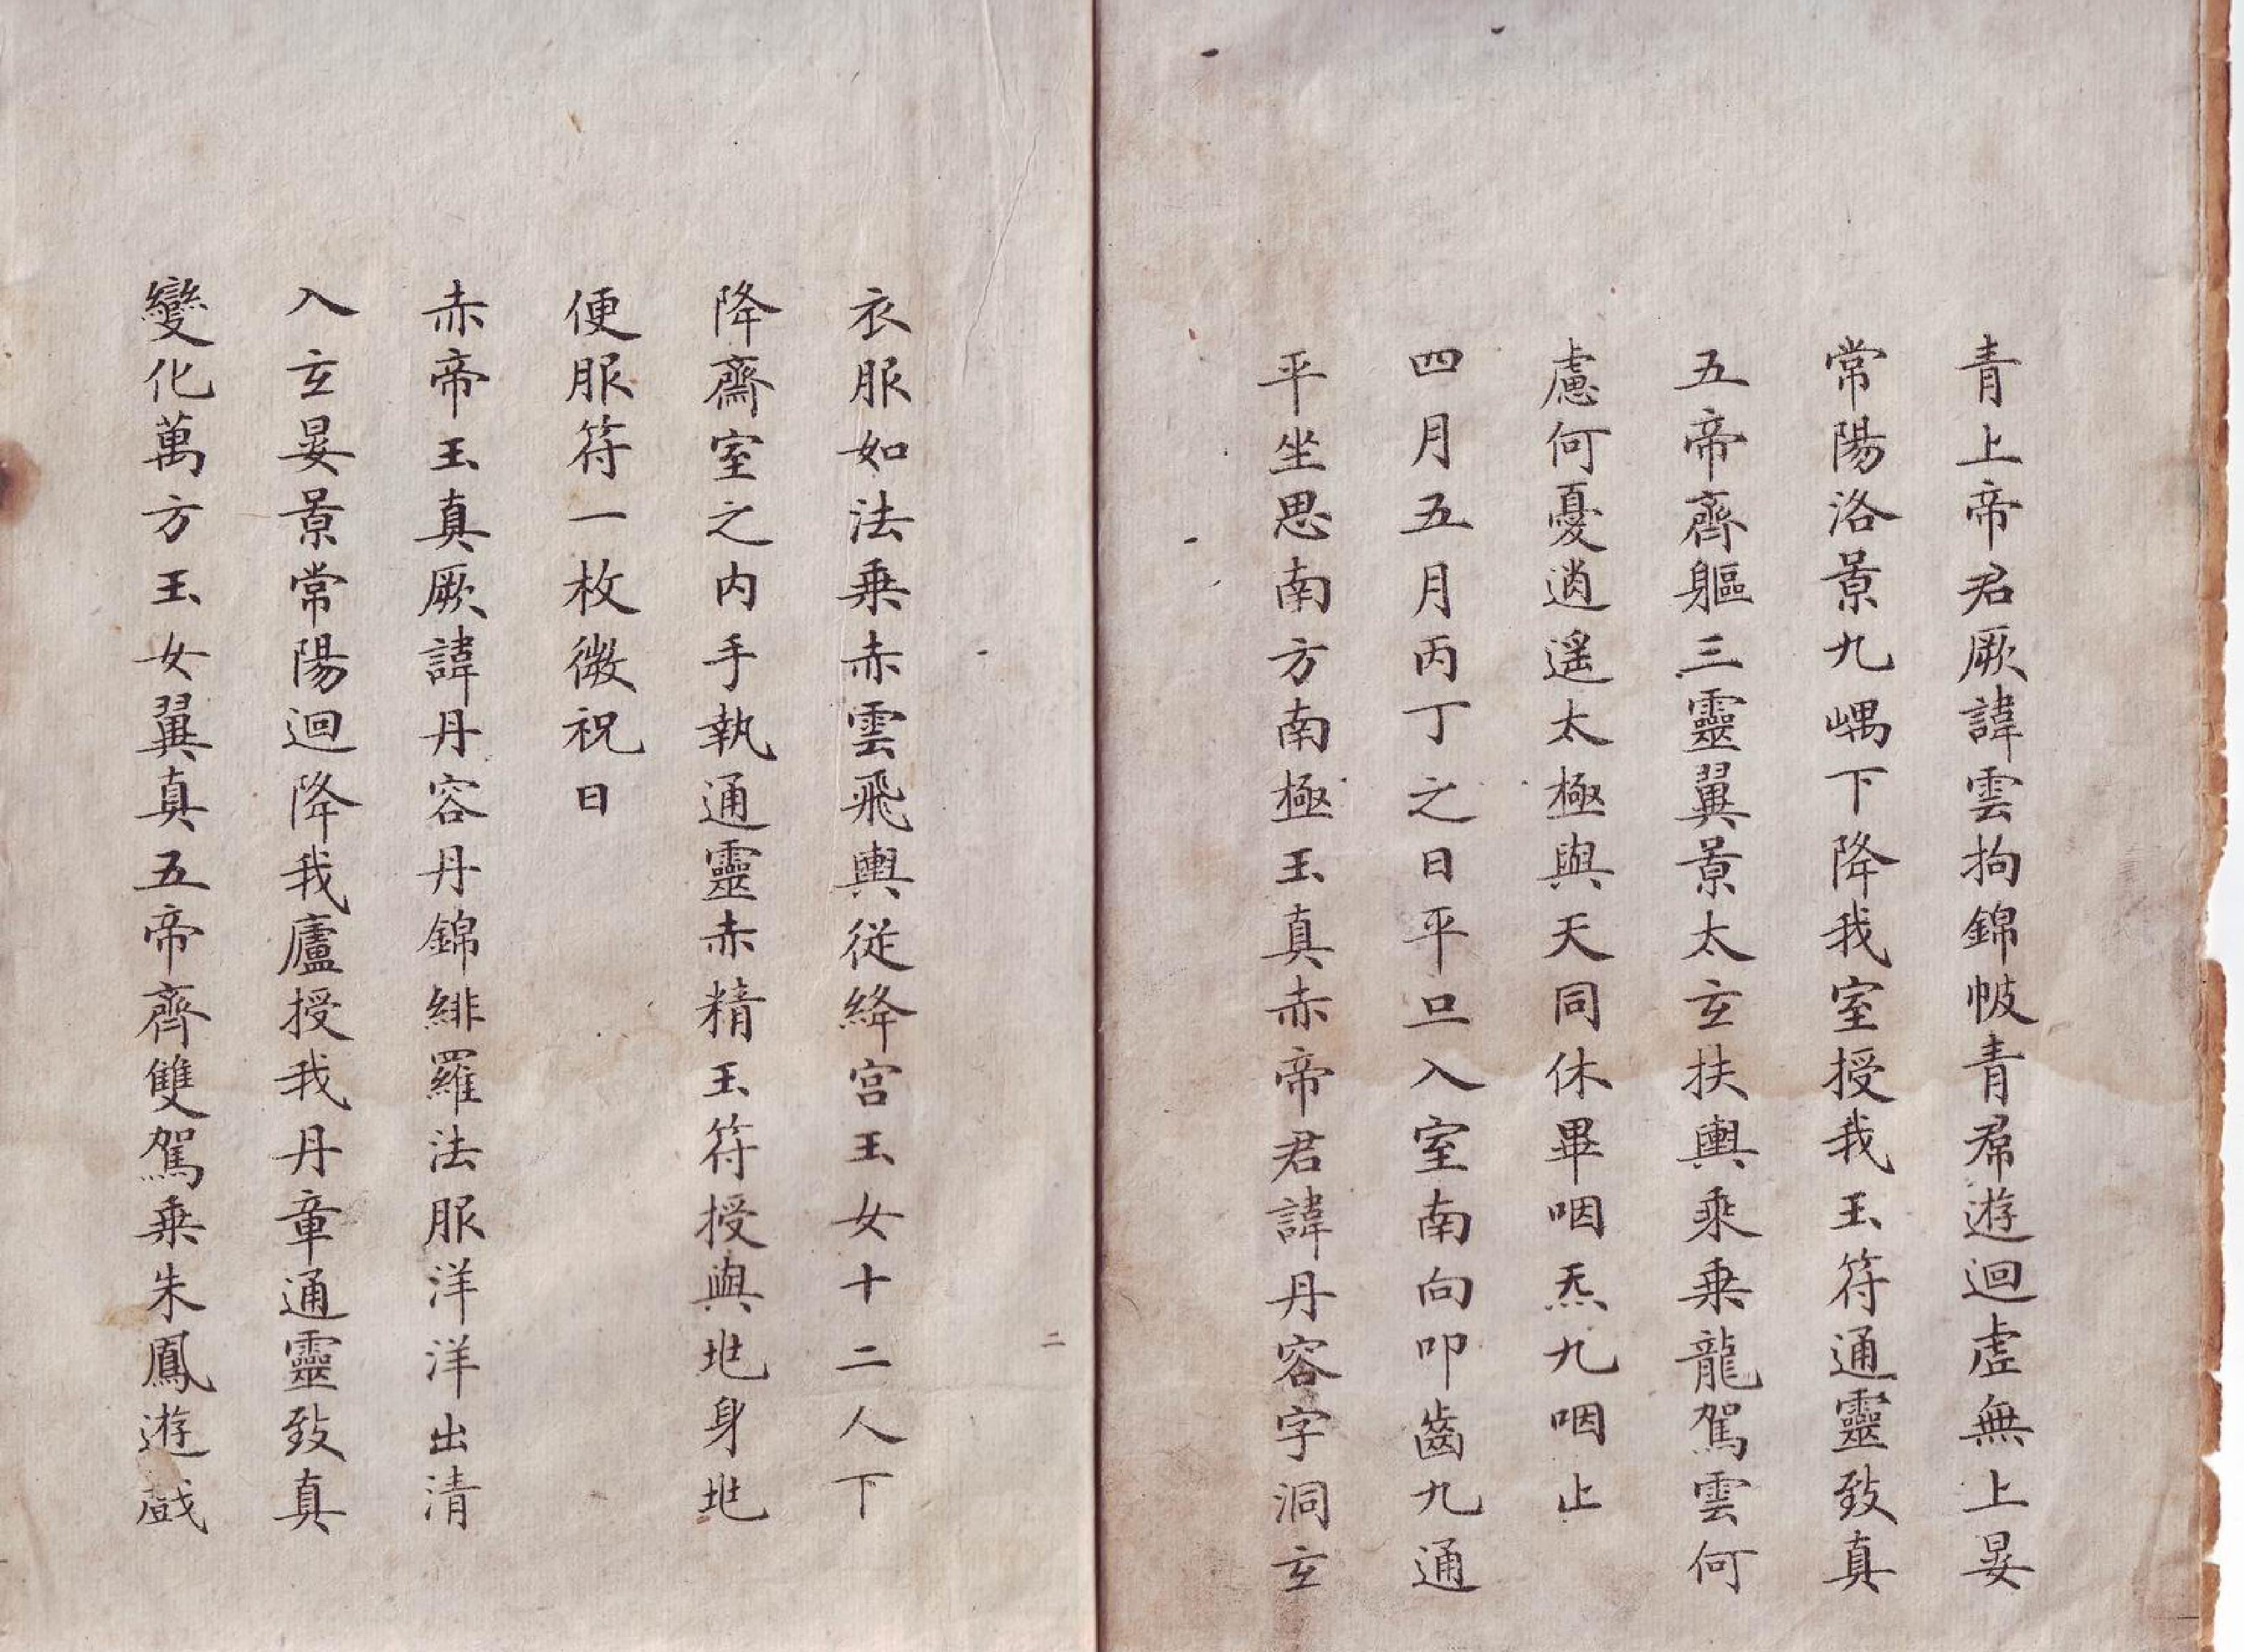 青上帝君厥諱雲拘錦帔青帬遊迴虛無上晏
常陽洛景九嵎下降我室授我玉符通靈致真
五帝齊軀三靈翼景太玄扶輿乘乗龍駕雲何
慮何憂逍遥太極與天同休畢咽炁九咽止
四月五月丙丁之日平旦入室南向叩齒九通
平坐思南方南極玉真赤帝君諱丹容字洞玄
衣服如法乗赤雲飛輿從絳宫玉女十二人下
降齋室之内手執通靈赤精玉符授與兆身兆
便服符一枚微祝曰
赤帝玉真厥諱丹容丹錦緋羅法服洋洋出清
入玄晏景常陽迴降我廬授我丹章通靈致真
變化萬方玉女翼真五帝齊雙駕乗朱鳳遊戲
二